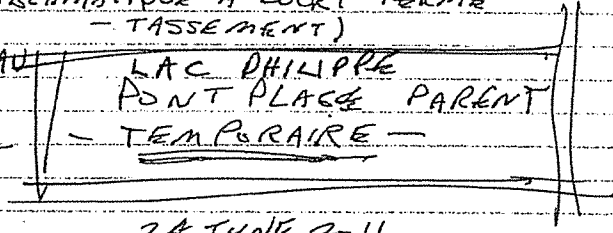 A COURT TERME
- TASSEMENT)
AU LAC PHILIPPE
PONT PLAGE PARENT
- TEMPORAIRE -